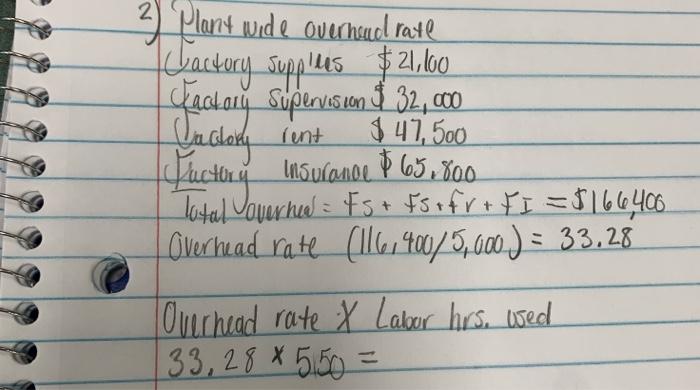 2) Plant wide overhead rate
Factory supplies $21,100
Factory Supervision $ 32,000
Factory rent $ 47,500
Factory Insurance $ 65,800
Total overhead = Fs + Fs + fr + FI = $166,400
Overhead rate (116,400/5,000) = 33.28
Overhead rate X Labor hrs. used
33.28 * 550 =